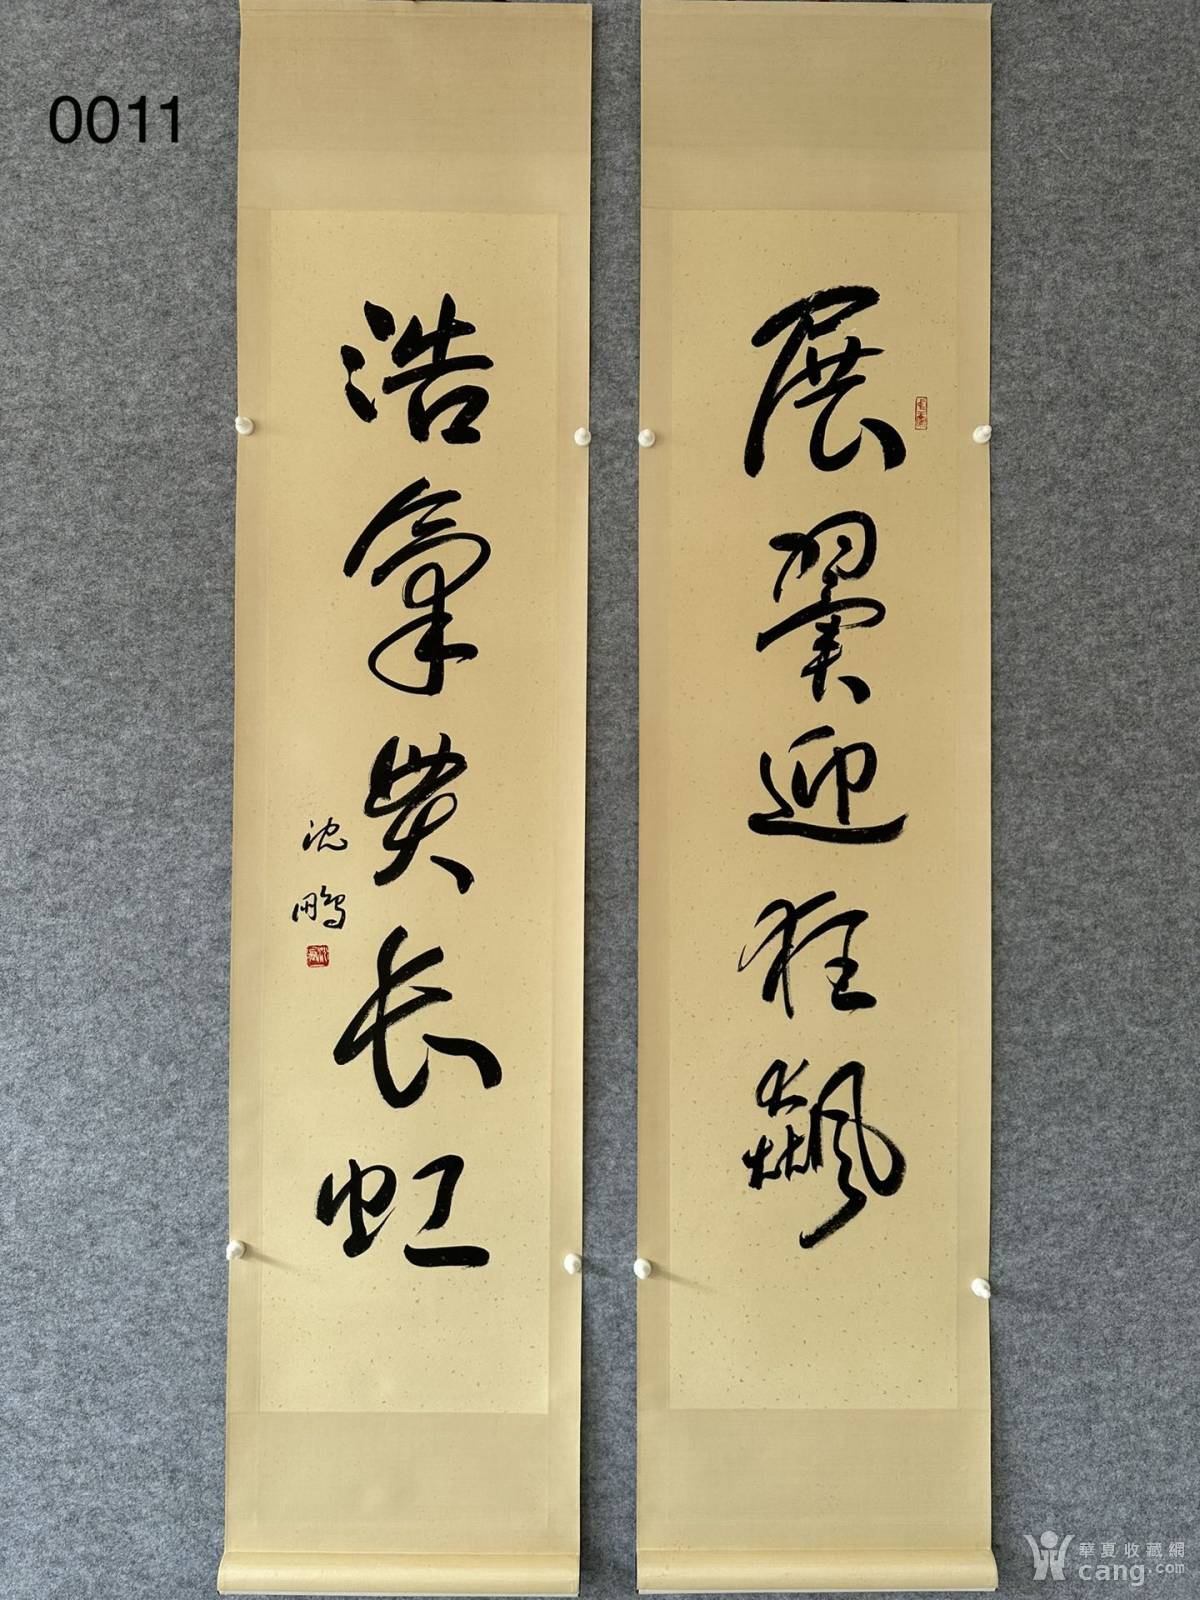 0011
展翼迎狂飙
浩氣贯长虹
沈鹏
華夏收藏網
cang.com